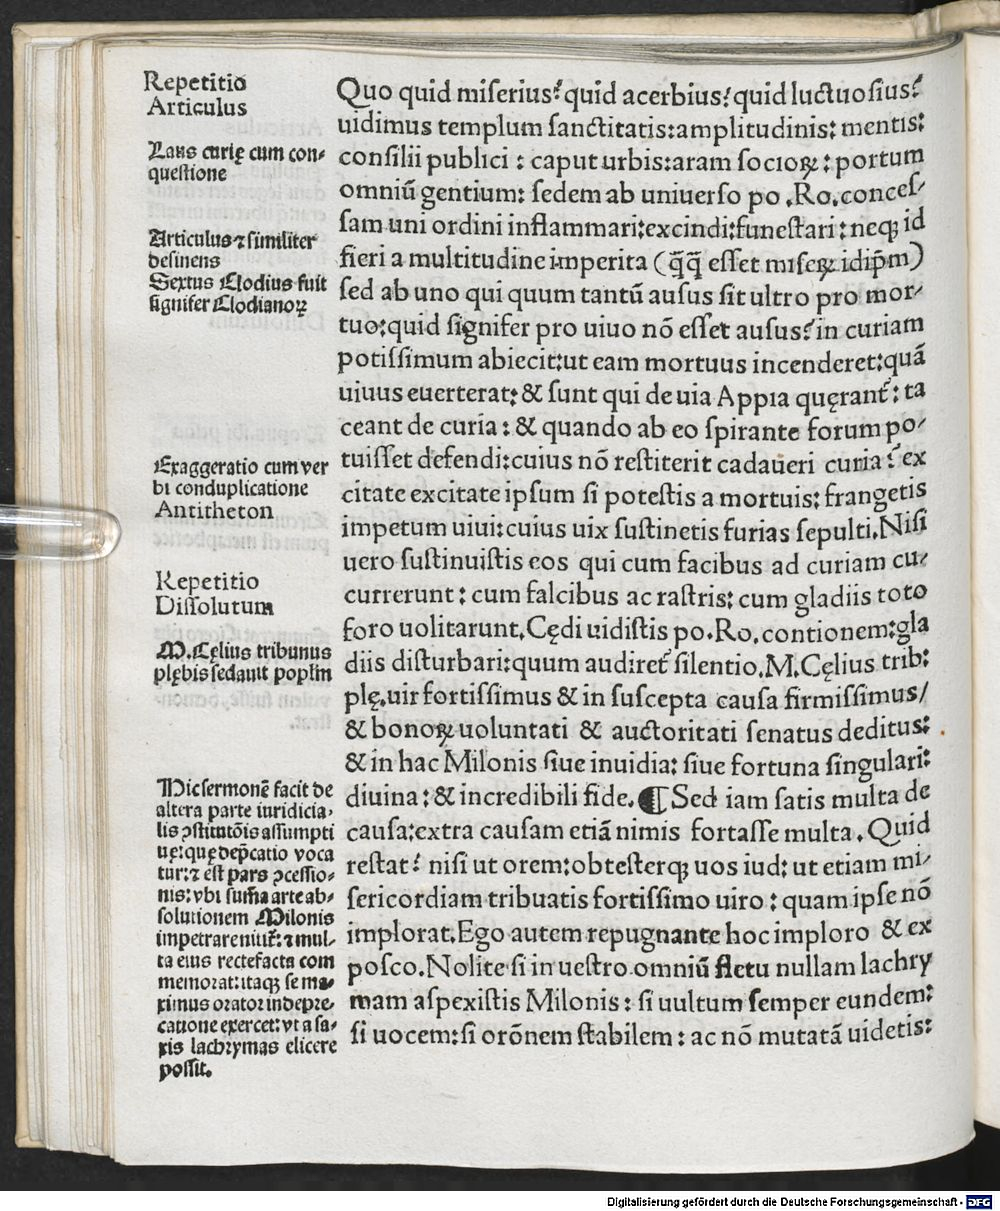 Repetitio
Articulus
Laus curię cum con-
questione
Articulus ⁊ similiter
desinens
Sextus Clodius fuit
signifer Clodianoꝝ
Exaggeratio cum ver
bi conduplicatione
Antitheton
Repetitio
Dissolutum
M. Cęlius tribunus
plębis sedauit poplm̄
Hic sermonē facit de
altera parte iuridicia-
lis ꝯstitutōis assumpti
uę: quę dep̄catio voca
tur: ⁊ est pars ꝯcessio-
nis: vbi sum̄a arte ab-
solutionem Milonis
impetrare nitit̃: ⁊ mul-
ta eius rectefacta com
memorat: itaqꝫ se ma-
ximus orator in depre-
catione exercet: vt a sa-
xis lachrymas elicere
possit.
Quo quid miserius? quid acerbius? quid luctuosius?
uidimus templum sanctitatis: amplitudinis: mentis:
consilii publici: caput urbis: aram socioꝝ: portum
omniū gentium: sedem ab uniuerso po. Ro. conces-
sam uni ordini inflammari: excindi: funestari: neqꝫ id
fieri a multitudine imperita (q̄q̄ esset miseꝝ id ip̄m)
sed ab uno qui quum tantū ausus sit ultro pro mor-
tuo: quid signifer pro uiuo nō esset ausus? in curiam
potissimum abiecit: ut eam mortuus incenderet: quā
uiuus euerterat: & sunt qui de uia Appia quęrant̃: ta
ceant de curia: & quando ab eo spirante forum po-
tuisset defendi: cuius nō restiterit cadaueri curia? ex
citate excitate ipsum si potestis a mortuis: frangetis
impetum uiui: cuius uix sustinetis furias sepulti. Nisi
uero sustinuistis eos qui cum facibus ad curiam cu-
currerunt: cum falcibus ac rastris: cum gladiis toto
foro uolitarunt. Cędi uidistis po. Ro. contionem: gla
diis disturbari: quum audiret̃ silentio. M. Cęlius trib:
plę. uir fortissimus & in suscepta causa firmissimus/
& bonoꝝ uoluntati & auctoritati senatus deditus:
& in hac Milonis siue inuidia: siue fortuna singulari:
diuina: & incredibili fide. ¶ Sed iam satis multa de
causa: extra causam etiā nimis fortasse multa. Quid
restat? nisi ut orem: obtesterqꝫ uos iud: ut etiam mi-
sericordiam tribuatis fortissimo uiro: quam ipse nō
implorat. Ego autem repugnante hoc imploro & ex
posco. Nolite si in uestro omniū fletu nullam lachry
mam aspexistis Milonis: si uultum semper eundem:
si uocem: si orōnem stabilem: ac nō mutatā uidetis:
Digitalisierung gefördert durch die Deutsche Forschungsgemeinschaft - DFG